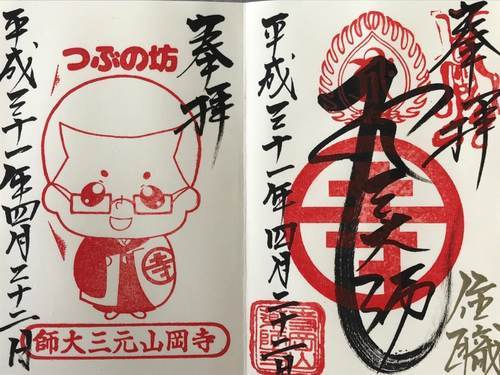 奉拝
つぶの坊
寺
平成三十一年四月二十二日
寺岡山元三大師
奉拝
寺
元三大師
平成三十一年四月二十二日
住職